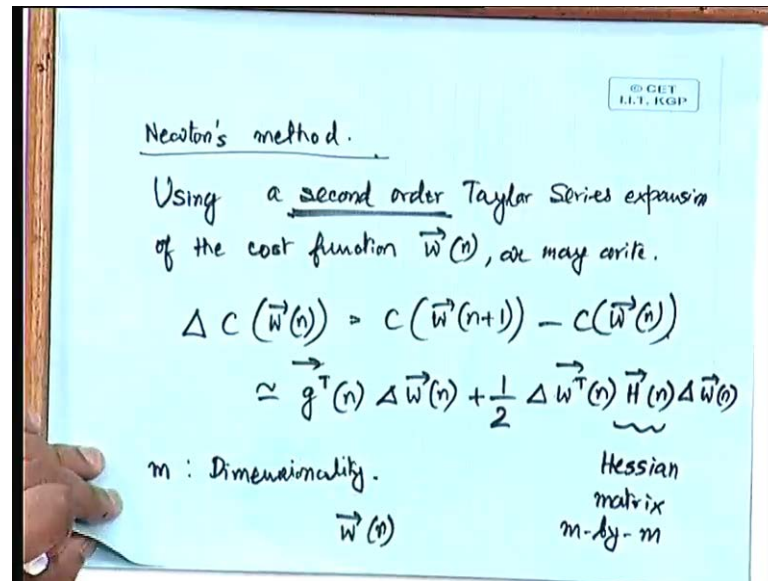 © CET
I.I.T. KGP
Newton's method.
Using a second order Taylor Series expansion
of the cost function w⃗(n), we may write.
Δ C (w⃗(n)) = C(w⃗(n+1)) − C(w⃗(n))
≃ g⃗ᵀ(n) Δw⃗(n) + 1/2 Δw⃗ᵀ(n) H⃗(n) Δw⃗(n)
m : Dimensionality. Hessian
matrix
w⃗(n) m-by-m